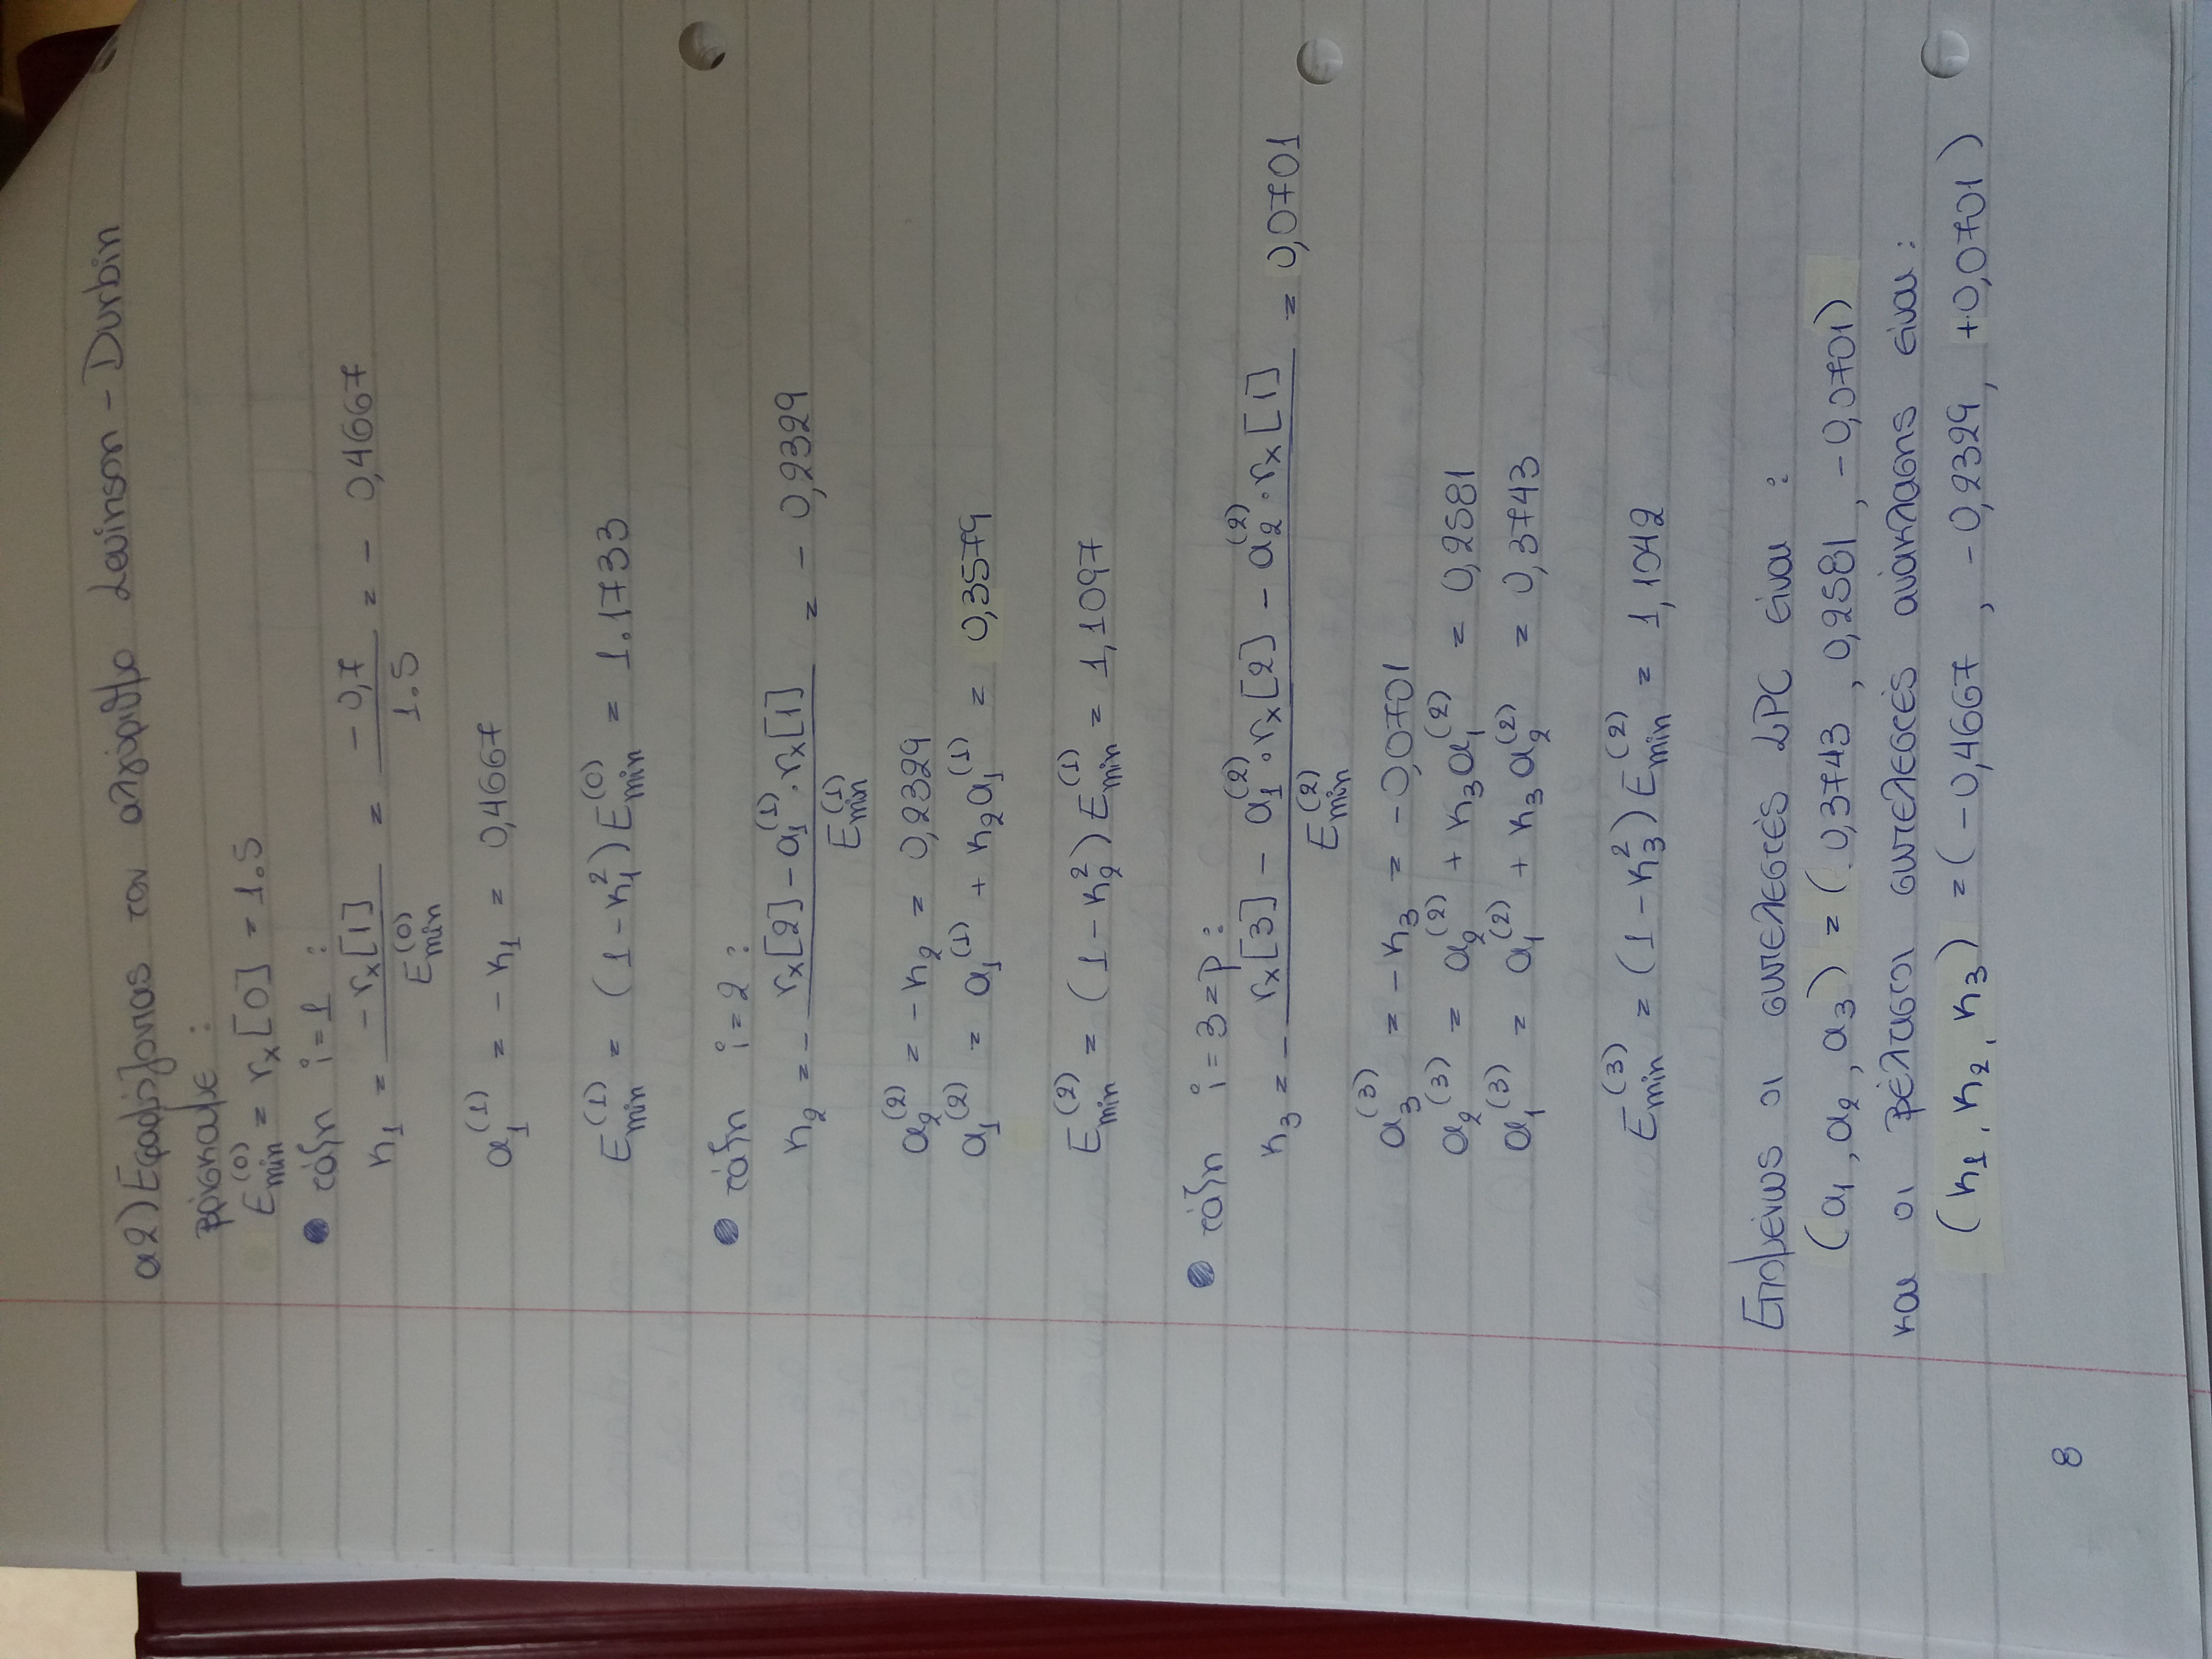 α2) Εφαρμόζοντας τον αλγόριθμο Levinson - Durbin
βρίσκουμε :
E_min^(0) = r_x[0] = 1.5
• τάξη i=1 :
κ_1 = -r_x[1] / E_min^(0) = -0,7 / 1.5 = - 0,4667
α_1^(1) = - κ_1 = 0,4667
E_min^(1) = (1-κ_1^2) E_min^(0) = 1.1733
• τάξη i=2 :
κ_2 = - (r_x[2] - α_1^(1)·r_x[1]) / E_min^(1) = - 0,2329
α_2^(2) = -κ_2 = 0,2329
α_1^(2) = α_1^(1) + κ_2α_1^(1) = 0,3579
E_min^(2) = (1-κ_2^2) E_min^(1) = 1,1097
• τάξη i=3=p :
κ_3 = - (r_x[3] - α_1^(2)·r_x[2] - α_2^(2)·r_x[1]) / E_min^(2) = 0,0701
α_3^(3) = -κ_3 = -0,0701
α_2^(3) = α_2^(2) + κ_3α_1^(2) = 0,2581
α_1^(3) = α_1^(2) + κ_3α_2^(2) = 0,3743
E_min^(3) = (1-κ_3^2) E_min^(2) = 1,1042
Επομένως οι συντελεστές LPC είναι :
(α_1, α_2, α_3) = (0,3743 , 0,2581 , -0,0701)
και οι βέλτιστοι συντελεστές ανάκλασης είναι :
(κ_1, κ_2, κ_3) = (-0,4667 , -0,2329, +0,0701)
8